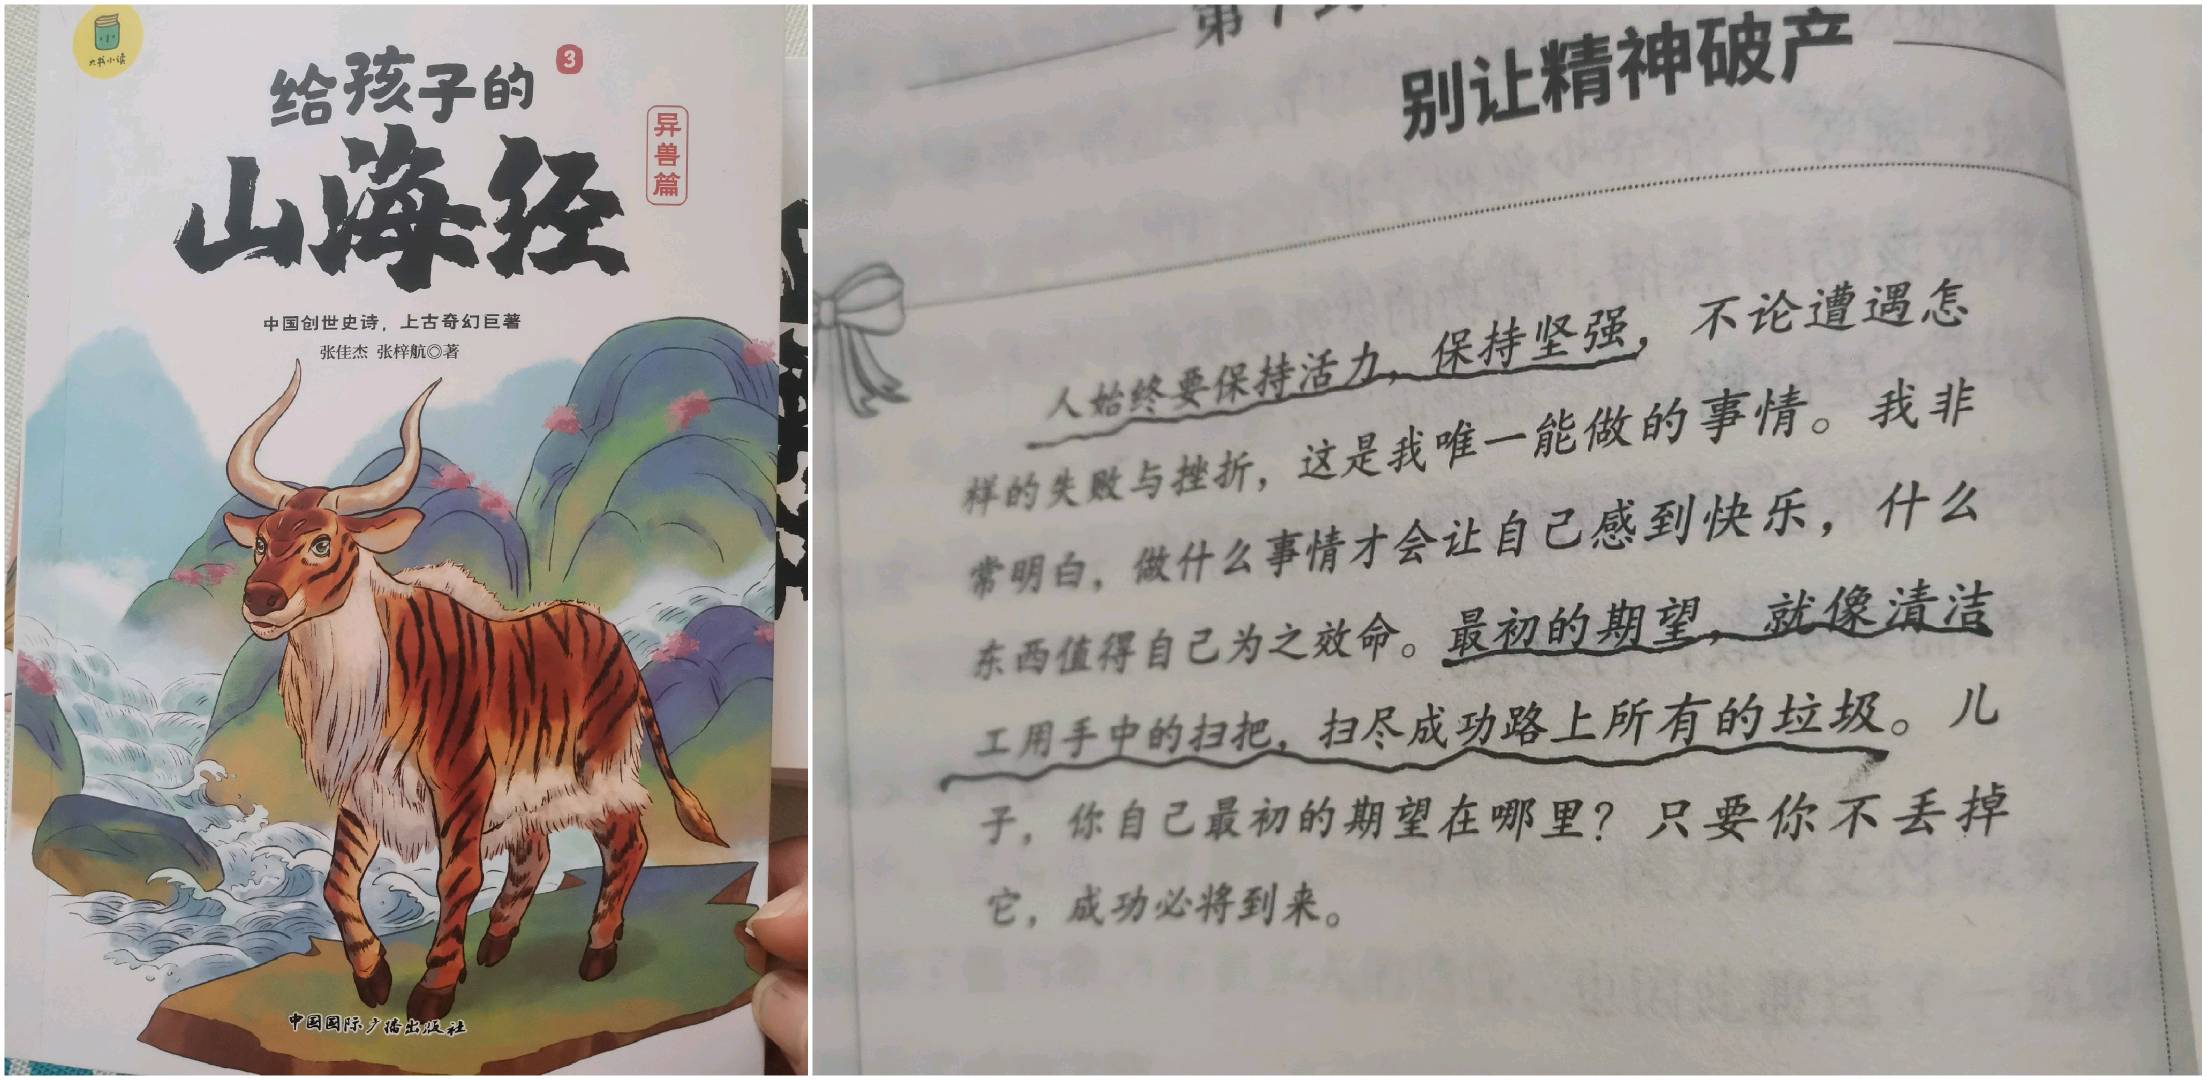 大书小读
给孩子的
3
山海经
异兽篇
中国创世史诗，上古奇幻巨著
张佳杰 张梓航◎著
中国国际广播出版社
别让精神破产
人始终要保持活力，保持坚强，不论遭遇怎
样的失败与挫折，这是我唯一能做的事情。我非
常明白，做什么事情才会让自己感到快乐，什么
东西值得自己为之效命。最初的期望，就像清洁
工用手中的扫把，扫尽成功路上所有的垃圾。儿
子，你自己最初的期望在哪里？只要你不丢掉
它，成功必将到来。